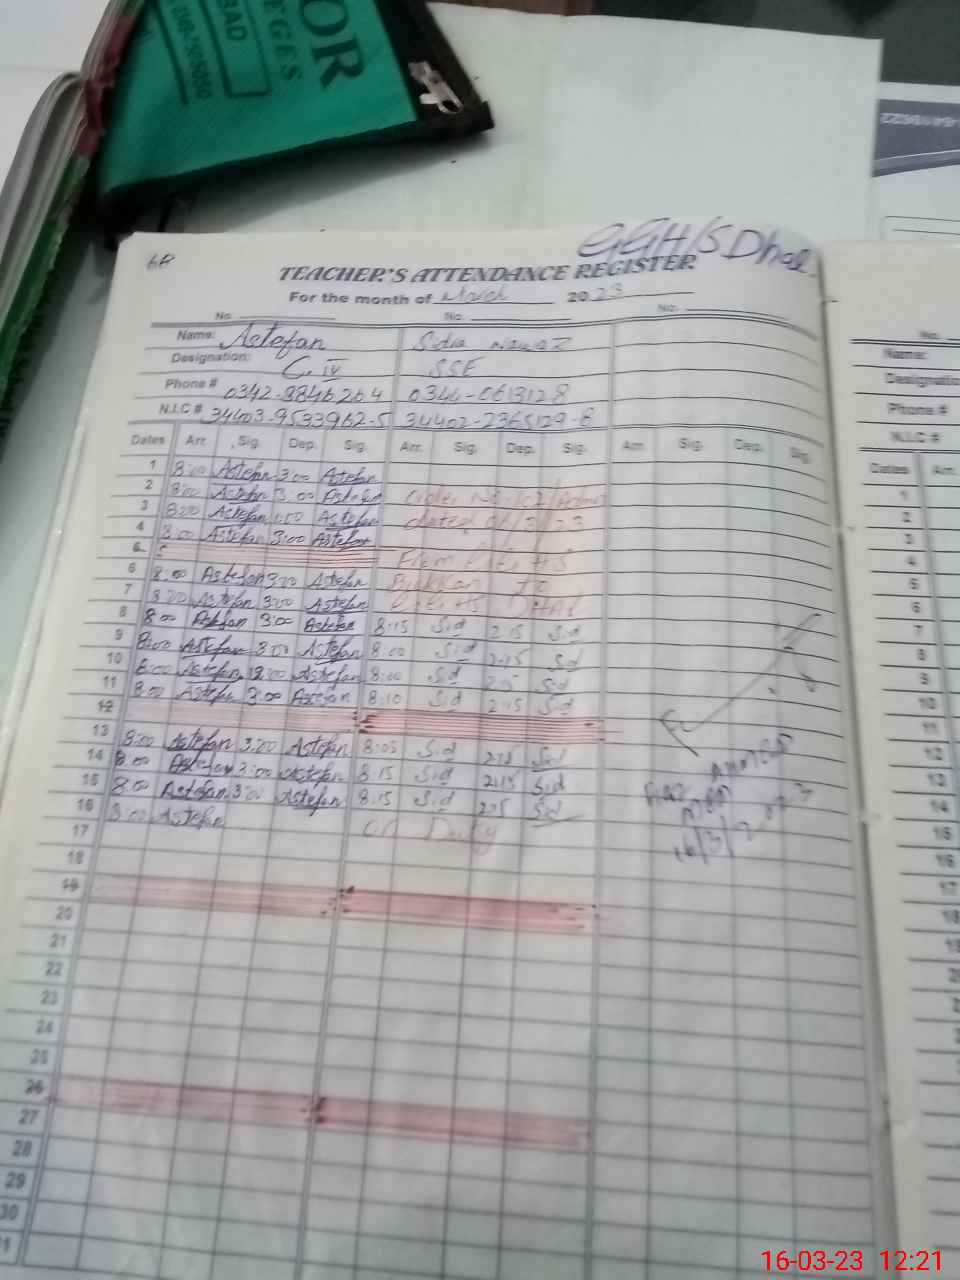 OR
EGES
BAD
GGH/S Dhal.
68
TEACHER'S ATTENDANCE REGISTER
For the month of March 2023
No. No. No:
Name: Astefan Sdia Nawaz
Designation: C. iv SSE
Phone # 0342-8846264 0344-0613128
N.I.C # 34403-9533962-5 34402-2365129-8
Dates Arr. Sig. Dep. Sig. Arr. Sig. Dep. Sig. Arr. Sig. Dep. Sig.
1 8:00 Astefan 3:00 Astefan
2 8:00 Astefan 3:00 Astefan
3 8:00 Astefan 1:00 Astefan dated 01/3/23
4 8:00 Astefan 3:00 Astefan
5 From
6 8:00 Astefan 3:00 Astefan
7 8:00 Astefan 3:00 Astefan
8 8:00 Astefan 3:00 Astefan 8:15 Sid 2:15 Sid
9 8:00 Astefan 3:00 Astefan 8:00 Sid 2:15 Sid
10 8:00 Astefan 12:00 Astefan 8:00 Sid 2:15 Sid
11 8:00 Astefan 3:00 Astefan 8:10 Sid 2:15 Sid
12
13 8:00 Astefan 3:00 Astefan 8:05 Sid 2:15 Sid
14 8:00 Astefan 3:00 Astefan 8:15 Sid 2:15 Sid
15 8:00 Astefan 3:00 Astefan 8:15 Sid 2:15 Sid
16 8:00 Astefan On Duty
16/3/2023
17
18
19
20
21
22
23
24
25
26
27
28
29
30
31
No.
Name:
Designatio
Phone #
N.I.C #
Dates Arr.
1
2
3
4
5
6
7
8
9
10
11
12
13
14
15
16
17
18
16-03-23 12:21